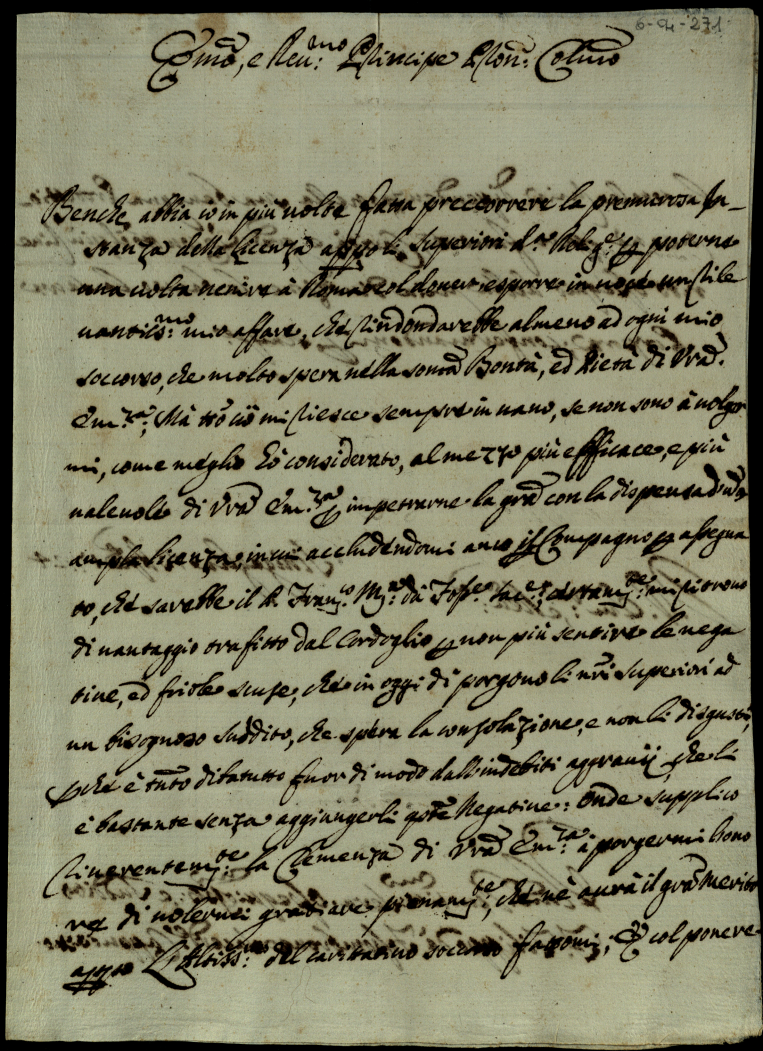 6-4-271
Em̃o, e Reu:mo Principe P̃ron: Colmo
Benche abbia io in più uolte fatta preccorrere la premurosa In-
stanza della licenza appo li Superiori d. Relig.e p poterne
una uolta uenire à Roma col douer esporre in uoce un rile
uantiss:mo mio affare, che rindondarebbe almeno ad ogni mio
soccorso, che molto spera nella soma Bontà, ed Pietà di Vrã
Em:za; Mà ttõ ciò mi riesce sempre in uano, se non sono à uolger
mi, come meglio hò considerato, al mezzo più efficace, e più
ualeuole di Vrã Em:za p impetrarne la grã con la dispensa d'una
ampla licenza, in cui accludendomi anco il Compagno p assegna
to, che sarebbe il P. Franc.o M.a da certamte: mi ritrouo
di uantaggio trafitto dal Cordoglio p non più sentire le nega
tiue, ed friole scuse, che in oggi di porgono li nrī Superiori ad
un bisognoso suddito, che spera la consolazione, e non li disgusti,
pche è tutto ditatutto fuor di modo dall'indebiti aggrauij, che li
è bastante senza aggiungerli qste Negatiue: Onde supplico
riuerentemte: la Clemenza di Vrã Em:za à porgermi l'hono
re di uolermi graziare pienamte, che nè aurà il grã Merito
appo L'Altiss:mo del caritatiuo soccorso fattomi; & col ponere